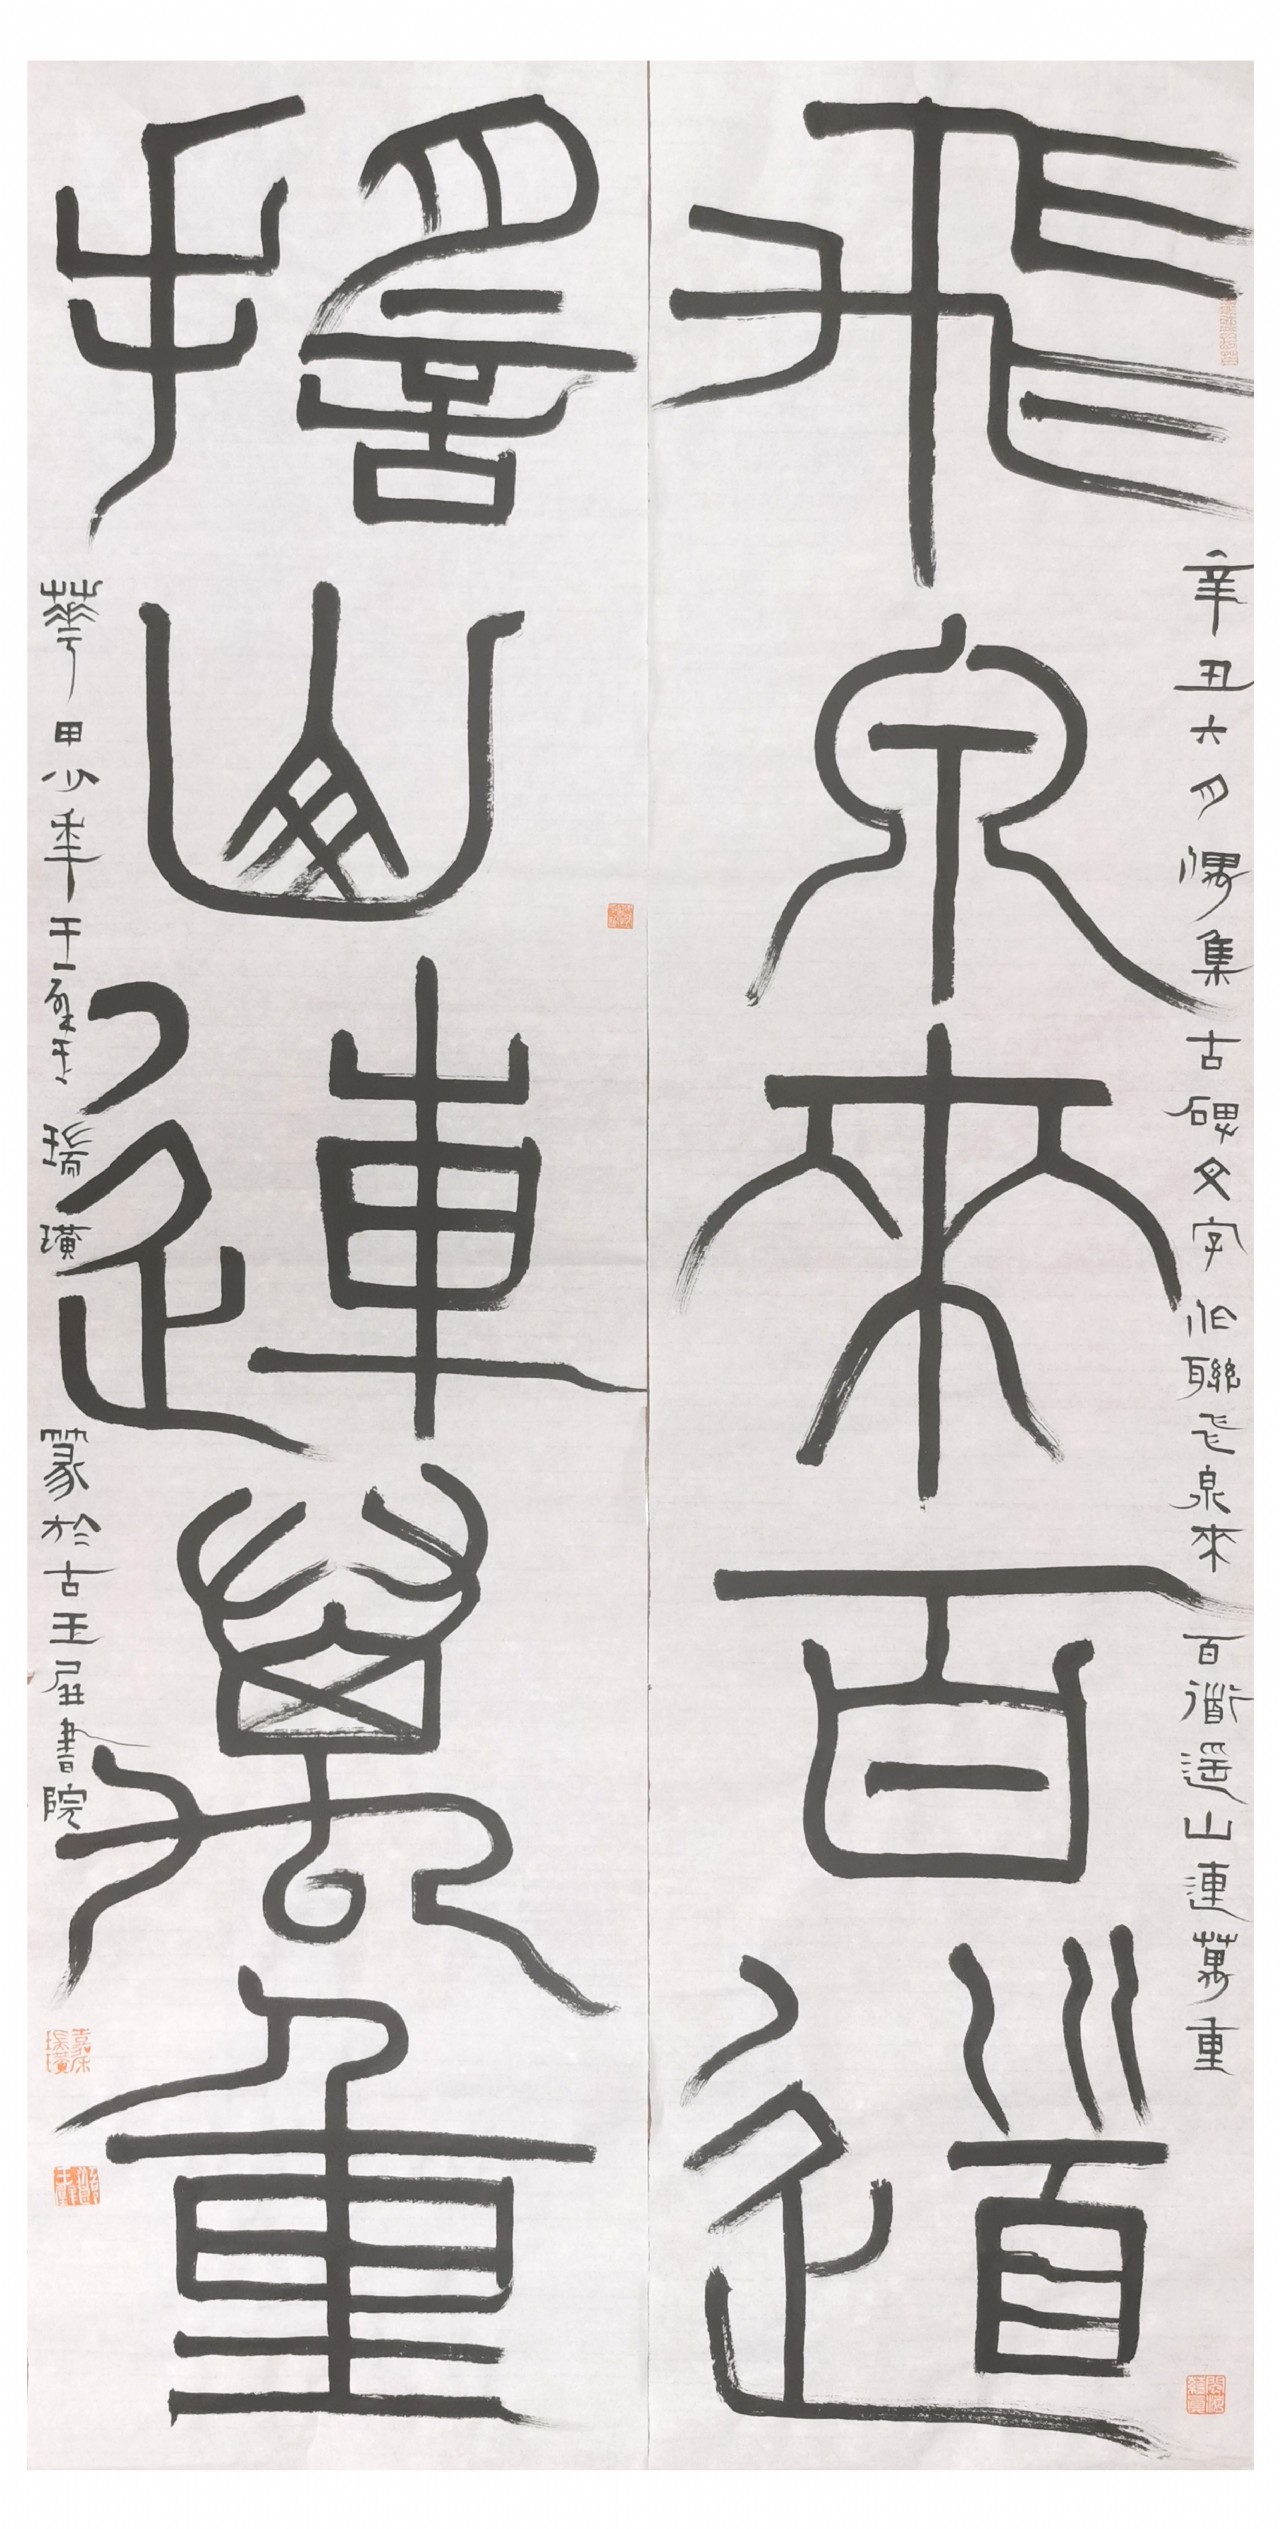 飛泉來百道
辛丑六月偶集古碑文字作聯飛泉來百道遥山連萬重
搖山連萬重
華甲少年王 瑞璜篆於古王屋書院